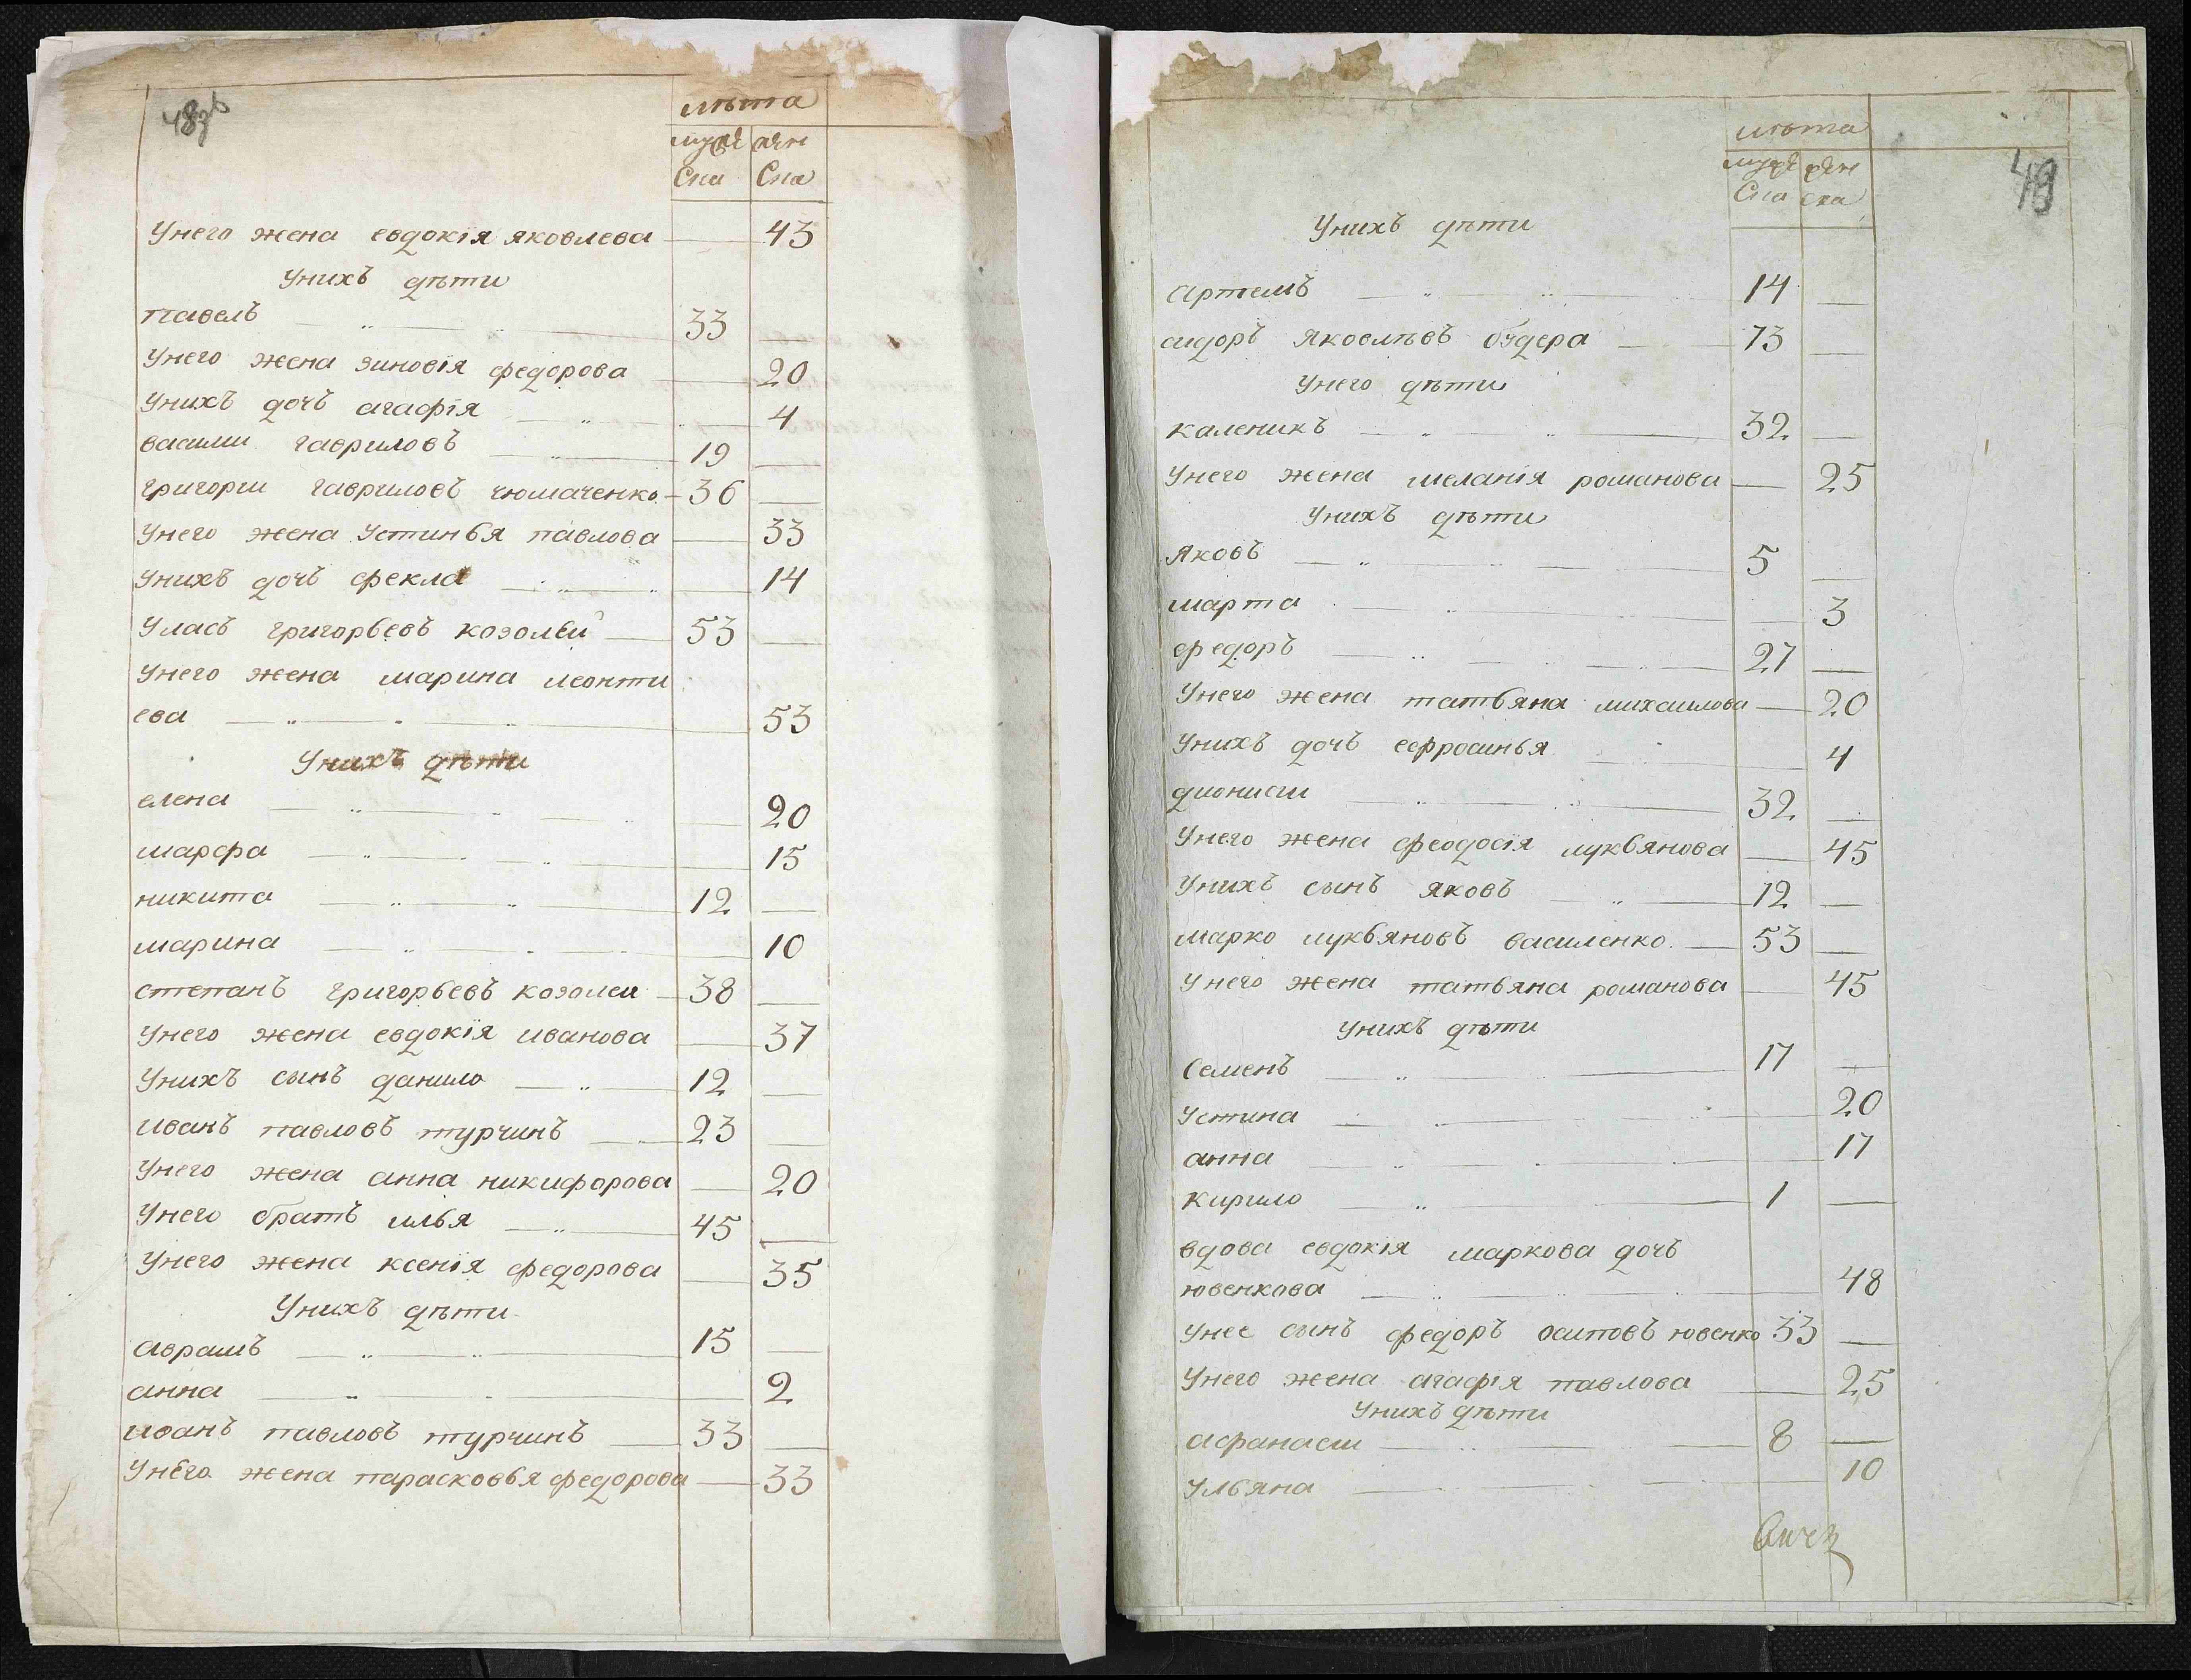 48зв
лѣта
муже жен
ска ска
Унего жена евдокія яковлева 43
Унихъ дѣти
павелъ 33
Унего жена зиновія федорова 20
Унихъ дочъ агафія 4
василии гавриловъ 19
григории гавриловъ чюмаченко 36
Унего жена Устинья павлова 33
Унихъ дочъ фекла 14
Уласъ григорьевъ козолѣй 53
Унего жена марина леонти
ева 53
Унихъ дѣти
елена 20
марфа 15
никита 12
марина 10
степанъ григорьевъ козолеи 38
Унего жена евдокія иванова 37
Унихъ сынъ данило 12
иванъ павловъ турчинъ 23
Унего жена анна никифорова 20
Унего братъ илья 45
Унего жена ксенія федорова 35
Унихъ дѣти
аврамъ 15
анна 2
иванъ павловъ турчинъ 33
Унего жена парасковья федорова 33
49
лѣта
муже жен
ска ска
Унихъ дѣти
Артемъ 14
сидоръ Яковлѣвъ бѹдера 73
Унего дѣти
каленикъ 32
Унего жена меланія романова 25
Унихъ дѣти
Яковъ 5
марта 3
федоръ 27
Унего жена татьяна михаилова 20
Унихъ дочъ еефросинья 4
дионисии 32
Унего жена феодосія лукьянова 45
Унихъ сынъ яковъ 12
марко лукьяновъ василенко 53
Унего жена татьяна романова 45
Унихъ дѣти
Семенъ 17
Устина 20
анна 17
Кирило 1
вдова евдокія маркова дочъ
ювенкова 48
Унее сынъ федоръ осиповъ ювенко 33
Унего жена агафія павлова 25
Унихъ дѣти
афанасии 8
Ульяна 10